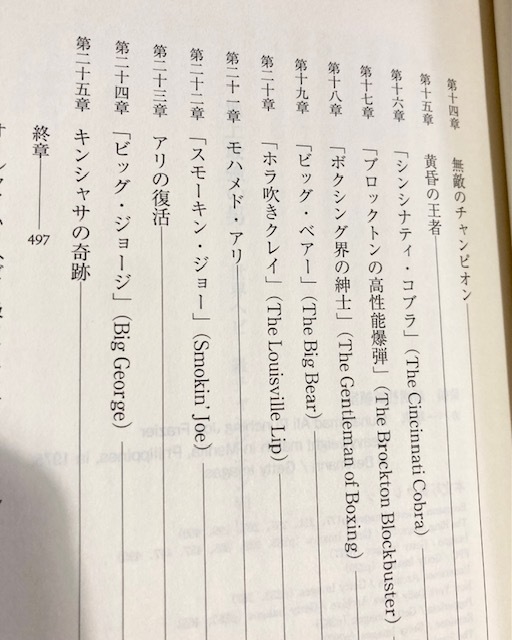 第十四章 無敵のチャンピオン
第十五章 黄昏の王者
第十六章 「シンシナティ・コブラ」(The Cincinnati Cobra)
第十七章 「ブロックトンの高性能爆弾」(The Brockton Blockbuster)
第十八章 「ボクシング界の紳士」(The Gentleman of Boxing)
第十九章 「ビッグ・ベアー」(The Big Bear)
第二十章 「ホラ吹きクレイ」(The Louisville Lip)
第二十一章 モハメド・アリ
第二十二章 「スモーキン・ジョー」(Smokin' Joe)
第二十三章 アリの復活
第二十四章 「ビッグ・ジョージ」(Big George)
第二十五章 キンシャサの奇跡
終章 497